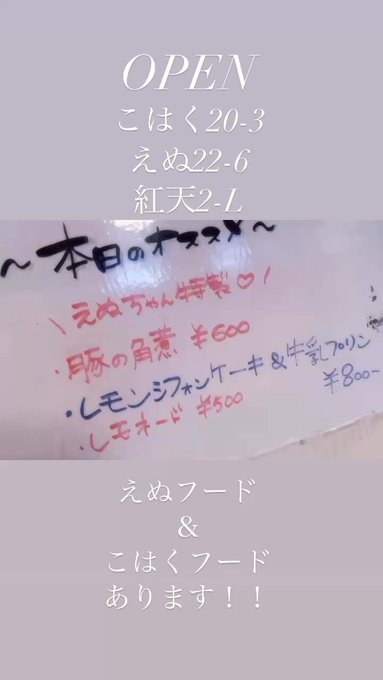 OPEN
こはく20-3
えぬ22-6
紅天2-L
～本日のオススメ～
\えぬちゃん特製♡/
・豚の角煮 ¥600
・レモンシフォンケーキ&牛乳プリン
¥800-
・レモネード ¥500
えぬフード
&
こはくフード
あります！！